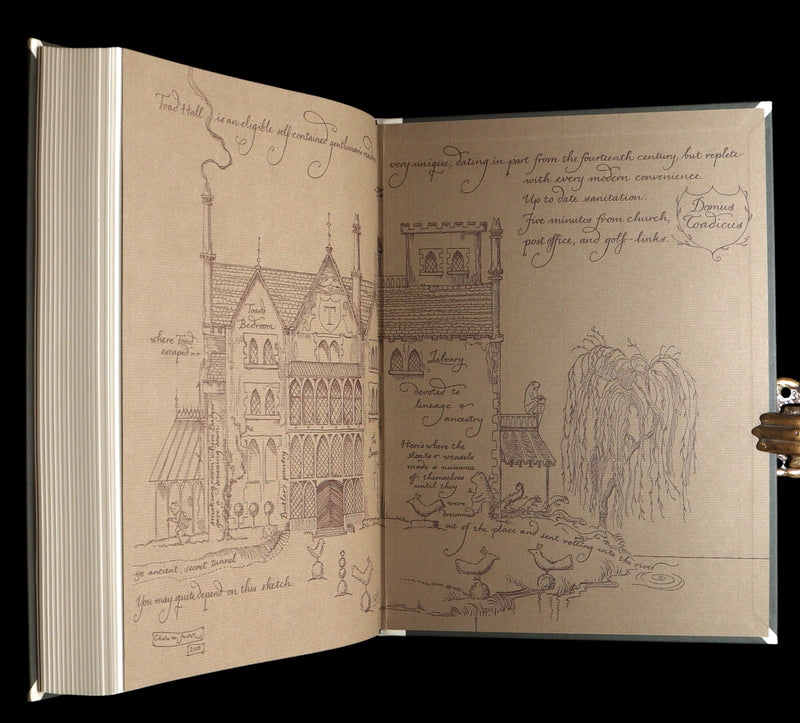 Toad Hall is an eligible self-contained gentleman's
very unique; dating in part from the fourteenth century, but replete
with every modern convenience.
Up to date sanitation.
Five minutes from church,
post office, and golf-links.
Domus
Toadicus
Toad's
Bedroom
T
where Toad
escaped
Library
devoted to
lineage &
ancestry
Butler's pantry
Here is where the
stoats & weasels
made a nuisance
of themselves
until they
were
drummed
out of the place and sent rolling into the river
ye ancient, secret tunnel
You may quite depend on this sketch.
2008